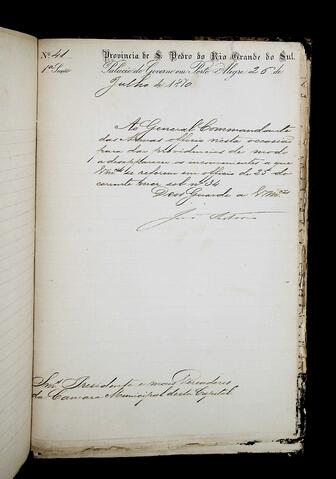 Nº 41 Provincia de S. Pedro do Rio Grande do Sul.
1ª Secção Palacio do Governo em Porto Alegre 26 de
Julho de 1870
Ao General Commandante
das Armas officio nesta occasião
para dar providencias de modo
a desapparecer os inconvenientes a que
Vmces se referem em officio de 25 do
corrente mez sob nº 34
Deos Guarde a Vmces
Snrs Presidente e mais Vereadores
da Camara Municipal desta Capital